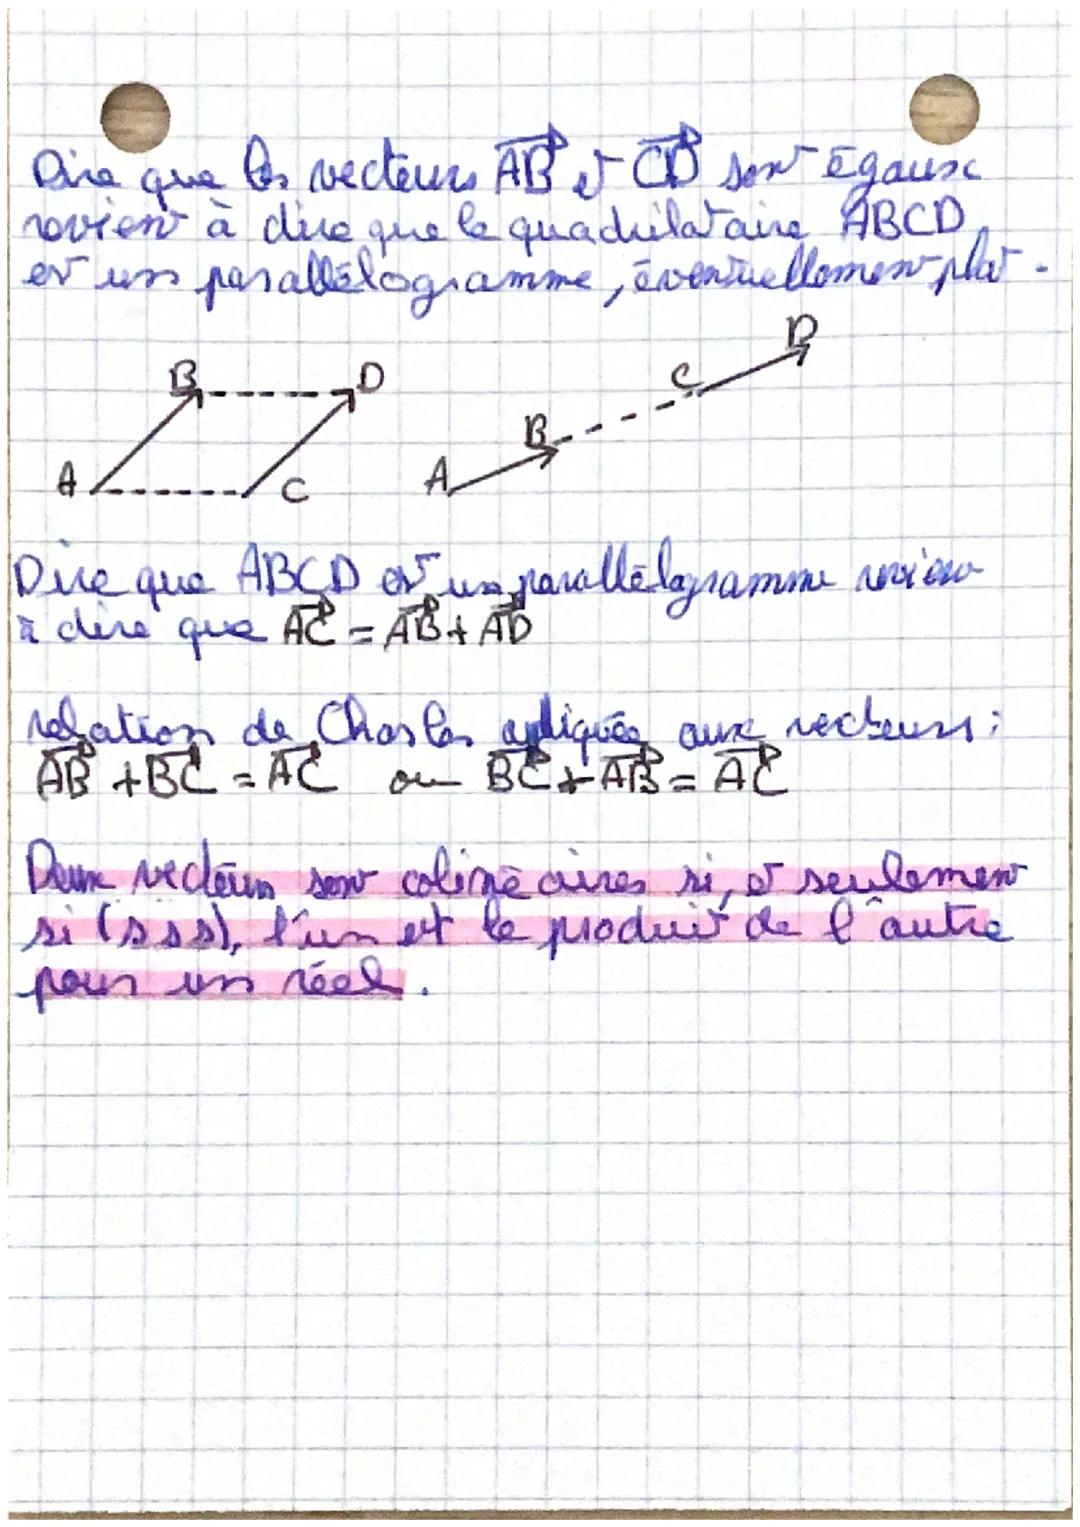 Dire que les vecteurs AB et CD sont égaux
revient à dire que le quadrilataire ABCD
est un parallélogramme, éventuellement plat.
B D
A C
D
C
B
A
Dire que ABCD est un parallélogramme revient
à dire que AC = AB + AD
relation de Chasles apliquée aux vecteurs :
AB + BC = AC ou BC + AB = AC
Deux vecteurs sont colinéaires si, et seulement
si (sss), l'un et le produit de l'autre
pour un réel.